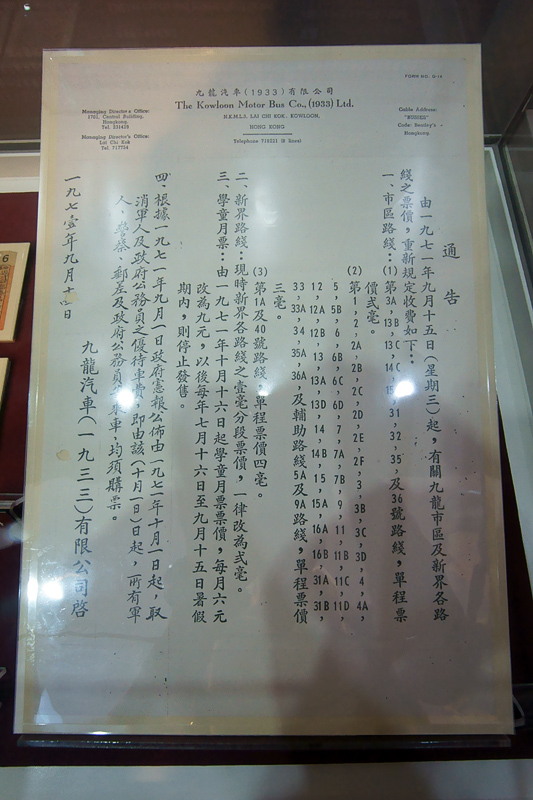 FORM NO.
九龍汽車(1933)有限公司
The Kowloon Motor Bus Co., (1933) Ltd.
N.K.I.M.L.3, LAI CHI KOK, KOWLOON,
HONG KONG
Telephone 719221 (8 lines)
Managing Director's Office:
1701, Central Building,
Hongkong.
Tel. 231428
Managing Director's Office:
Lai Chi Kok
Tel. 717754
Cable Address:
"BUSSES"
Code: Bentley's
Hongkong.
通告
由一九七一年九月十五日(星期三)起,有關九龍市區及新界各路
綫之票價,重新規定收費如下:
一、市區路綫:第3A, 13B, 13C, 14C, 31, 32, 35, 及36號路綫,單程票
價弍毫。
(2)第1, 2, 2A, 2B, 2C, 2D, 2E, 2F, 3, 3B, 3C, 3D, 4, 4A,
5, 5B, 6, 6B, 6C, 6D, 7, 7A, 7B, 9, 11, 11B, 11C, 11D,
12, 12A, 12B, 13, 13A, 13D, 14, 14B, 15, 15A, 16A, 16B, 31A, 31B,
33, 33A, 34, 35A, 36A, 及輔助路綫5A及9A路綫,單程票價
三毫。
(3)第1A及40號路綫,單程票價四毫。
二、新界路綫:現時新界各路綫之壹毫分段票價,一律改為弍毫。
三、學童月票:由一九七一年十月十六日起學童月票票價,每月六元
改為九元,以後每年七月十六日至九月十五日暑假
期內,則停止發售。
四、根據一九七一年九月一日政府憲報公佈由一九七一年十月一日起,取
消軍人及政府公務員之優待車費,即由該(十月一日)日起,所有軍
人、警察、郵差及政府公務員乘車,均須購票。
九龍汽車(一九三三)有限公司啓
一九七壹年九月十日